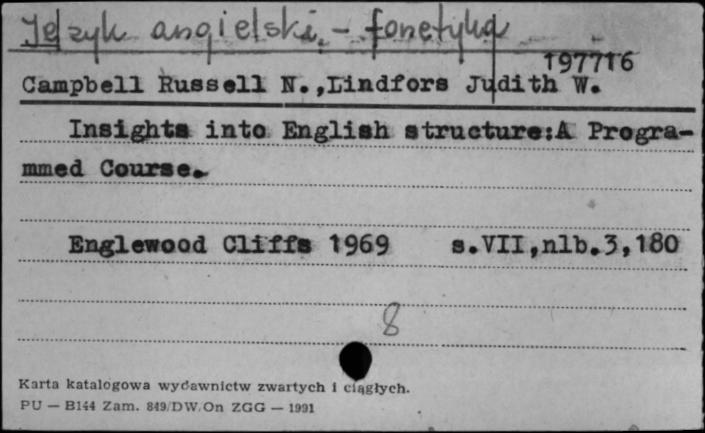 Język angielski, - fonetyka
197716
Campbell Russell N.,Lindfors Judith W.
Insights into English structure:A Progra-
mmed Course.
Englewood Cliffs 1969 s.VII,nlb.3,180
8
Karta katalogowa wydawnictw zwartych i ciągłych.
PU — B144 Zam. 849/DW/On ZGG — 1991